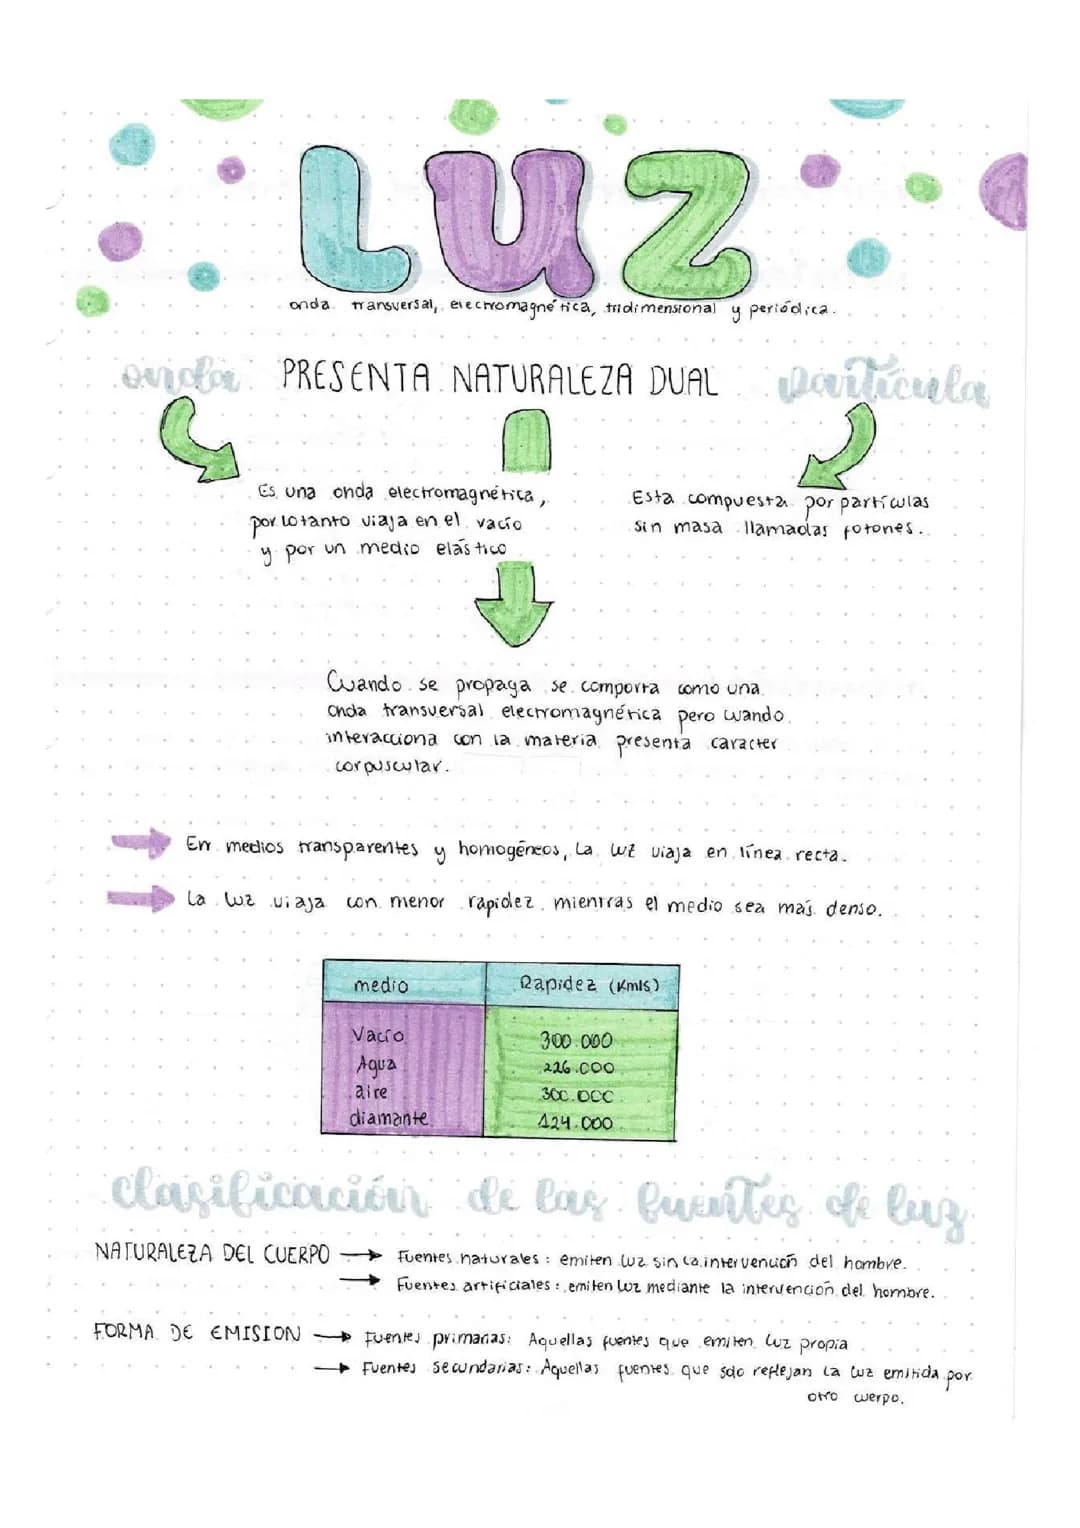 LUZ
onda transversal, electromagnética, tridimensional y periódica.
onda PRESENTA NATURALEZA DUAL partícula
Es una onda electromagnética,
por lo tanto viaja en el vacío
y por un medio elástico
Esta compuesta por partículas
sin masa llamadas fotones.
Cuando se propaga se comporta como una
onda transversal electromagnética pero cuando
interacciona con la materia presenta caracter
corpuscular.
En medios transparentes y homogéneos, La luz viaja en línea recta.
La luz viaja con menor rapidez mientras el medio sea más denso.
medio Rapidez (Km/s)
Vacío 300.000
Agua 226.000
aire 300.000
diamante 124.000
clasificación de las fuentes de luz
NATURALEZA DEL CUERPO → Fuentes naturales: emiten luz sin la intervención del hombre.
→ Fuentes artificiales: emiten luz mediante la intervención del hombre.
FORMA DE EMISION → Fuentes primarias: Aquellas fuentes que emiten luz propia
→ Fuentes secundarias: Aquellas fuentes que solo reflejan la luz emitida por
otro cuerpo.